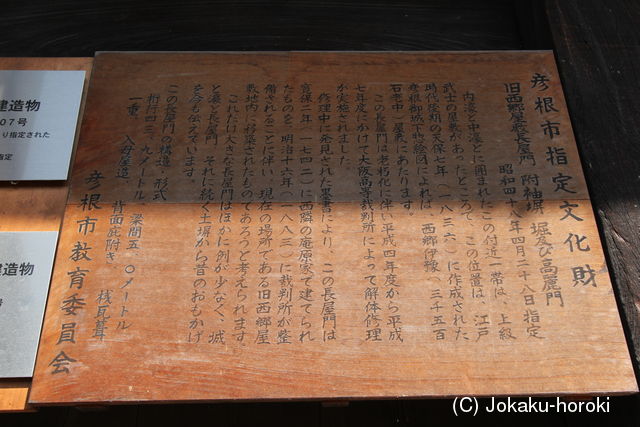 彦根市指定文化財
旧西郷屋敷長屋門 附袖塀、堀及び高麗門
昭和四十八年四月二十八日指定
内濠と中濠とに囲まれたこの付近一帯は、上級
武士の屋敷があったところで、この位置は、江戸
時代後期の天保七年(一八三六)に作成された
彦根御城下惣絵図によれば、西郷伊豫(三千五百
石老中)屋敷にあたります。
この長屋門は老朽化に伴い平成四年度から平成
七年度にかけて大阪高等裁判所によって解体修理
が実施されました。
修理中に発見された墨書により、この長屋門は
寛保二年(一七四二)に西隣の庵原家で建てられ
たものを、明治十六年(一八八三)に裁判所が整
備されることに伴い、現在の場所である旧西郷屋
敷地内に移築されたものであろうと考えられます。
これだけ大きな長屋門はほかに例が少なく、城
と濠と長屋門、それに続く土塀から昔のおもかげ
を今も伝えています。
この長屋門の構造・形式
桁行四三、九メートル、梁間五、〇メートル
一重、入母屋造、背面庇附き、桟瓦葺
彦根市教育委員会
建造物
07号
り指定された
指定
建造物
号
(C) Jokaku-horoki